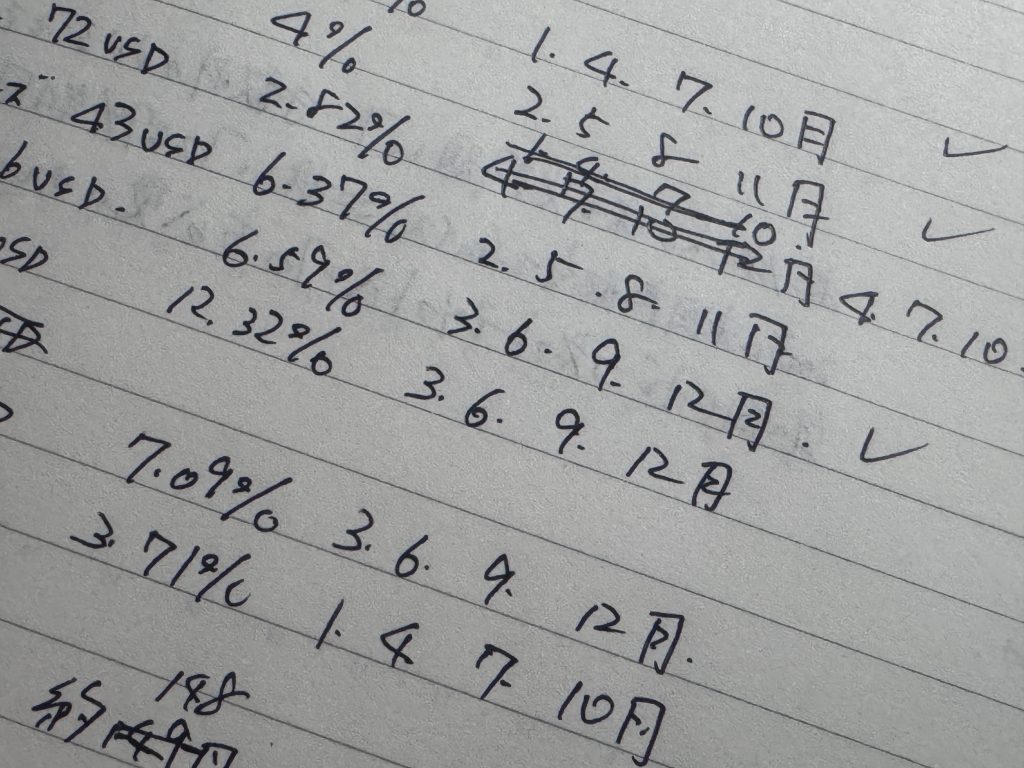 %
72 USD 4% 1. 4. 7. 10月 ✓
ズ 43 USD 2.82% 2. 5 8 11月 ✓
6 USD. 6.37% 4 7. 10 12月 4. 7. 10.
SD 6.59% 2. 5. 8. 11月
12.32% 3. 6. 9. 12月. ✓
3. 6. 9. 12月
7.09% 3. 6. 9. 12月.
3.71% 1. 4 7. 10月
約 148